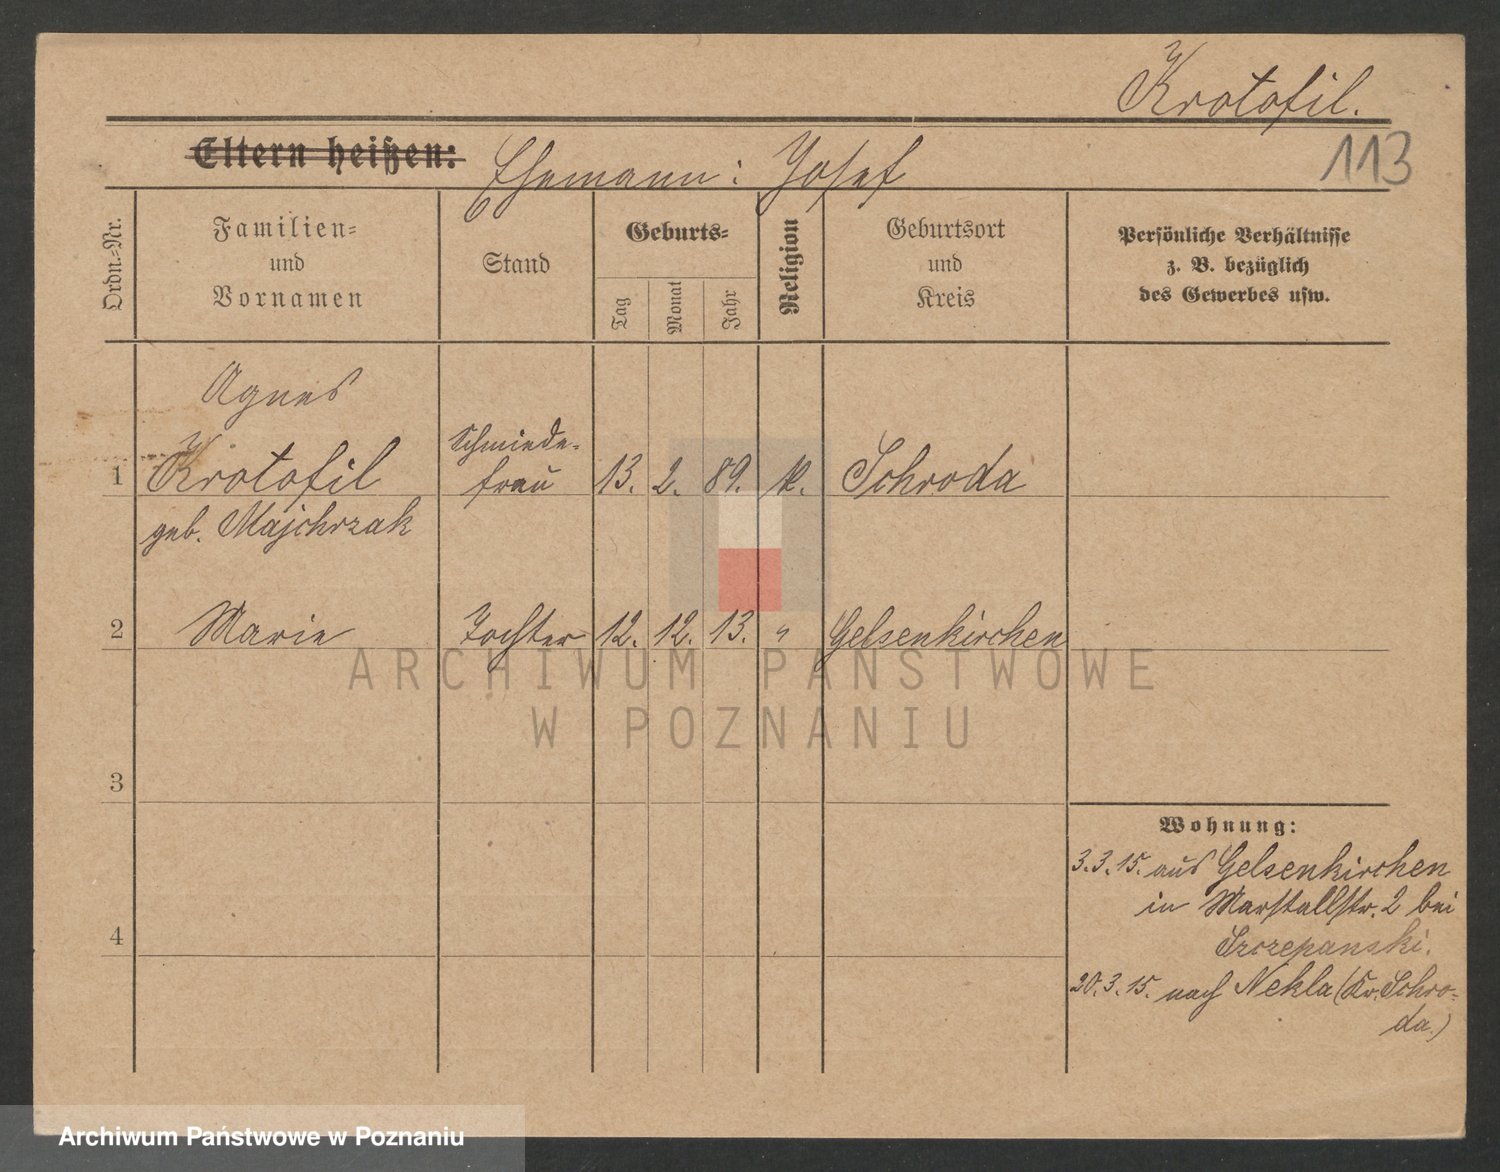 Krotofil.
113
Eltern heißen: Ehemann: Josef
Ordn.-Nr.
Familien-
und
Vornamen
Stand
Geburts-
Tag
Monat
Jahr
Religion
Geburtsort
und
Kreis
Persönliche Verhältnisse
z. B. bezüglich
des Gewerbes usw.
Agnes
1 Krotofil Schmiede-
frau 13. 2. 89. k. Schroda
geb. Majchrzak
2 Marie Tochter 12. 12. 13. " Gelsenkirchen
ARCHIWUM PAŃSTWOWE
W POZNANIU
3
4
Wohnung:
3.3.15. aus Gelsenkirchen
in Marstallstr. 2 bei
Szczepanski.
20.3.15. nach Nekla (Kr. Schro-
da.)
Archiwum Państwowe w Poznaniu